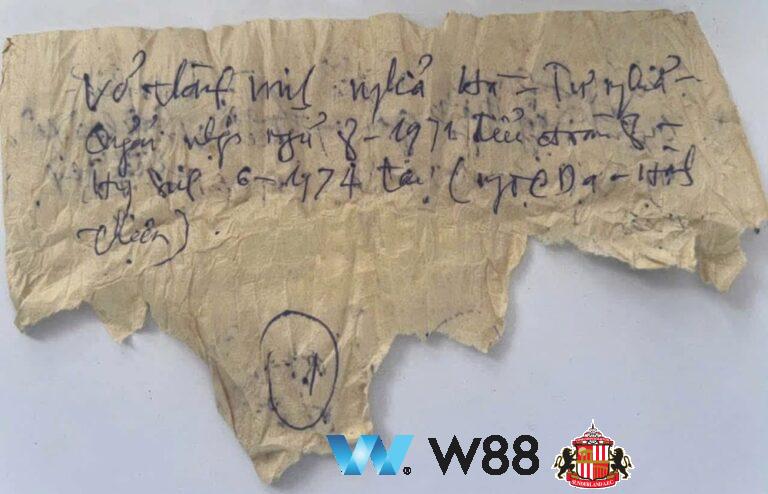 Võ thành minh nghĩa Hà - Tư nghĩa -
Quảng nhập ngũ 8 - 1971 Tiểu đoàn
Hy sinh 6 - 1974 tại (ngọc Dạ - Hành
thiện)
W. W88
SUNDERLAND A.F.C